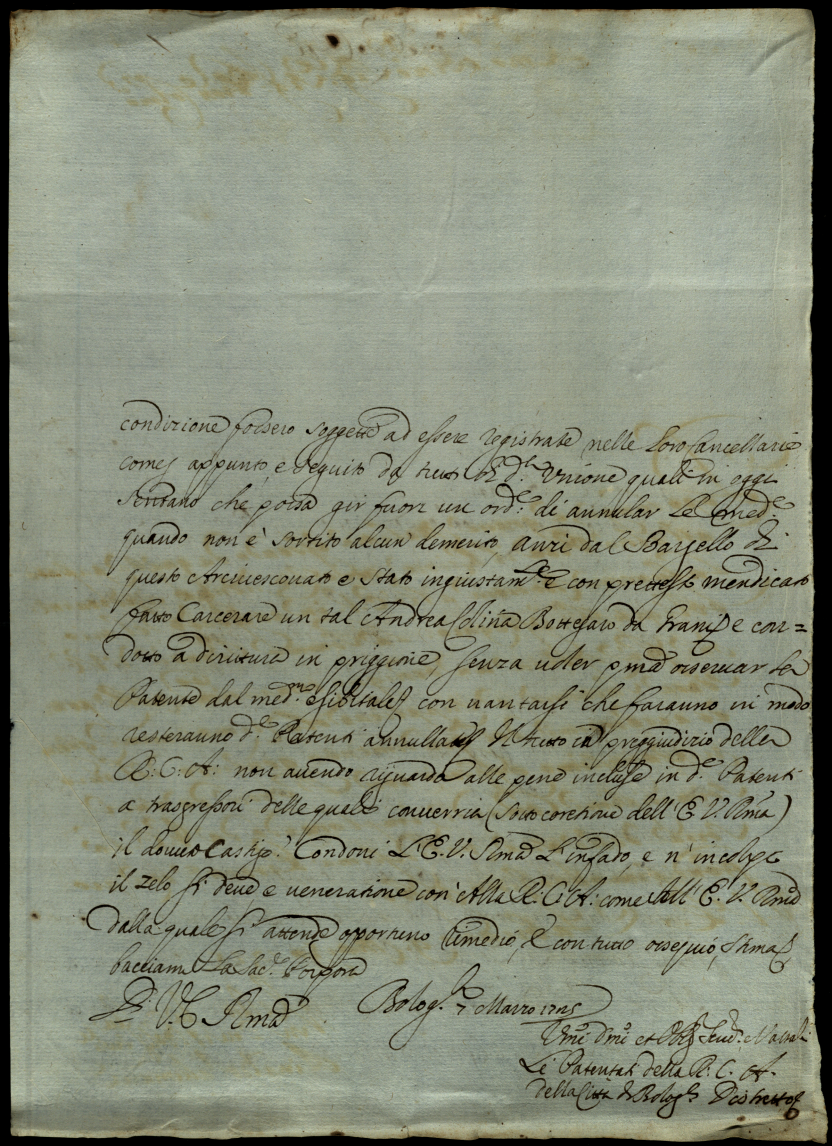 condizione fossero soggette ad essere registrate nelle Loro Cancellarie
come appunto è seguito da tutti di d.ta Unione quali in oggi
sentano che possa gir fuori un ord.e di annular le med.e
quando non è sortito alcun demerito, anzi dal Bargello di
questo Arcivescovato e stato ingiustam.te e con prettesto mendicato
fatto Carcerare un tal Andrea Colina Bottegaro da e con=
dotto a diritura in priggione, senza voler p.ma osservar la
Patente dal med.mo con vantarsi che faranno in modo
resteranno d.e Patenti annullate Il tutto in preggiudizio della
R: C: A: non avendo riguardo alle pene incluse in d.e Patenti
a trasgressori delle quali converria (sotto coretione dell' E. V. R.ma)
il dovuto castigo. Condoni L'E. V. R.ma L'infado, e n' incolpi
il zelo si deve e veneratione così Alla R: C: A: come All' E. V. R.ma
dalla quale si attende opportuno rimedio, e con tutto ossequio,
bacciam La Sac.a Porpora
D. V. E. R.ma
Bolog.a 7 Marzo 1725
Um.mi D.mi et Obl. Serv.
Li Patentati della R. C. A.
della Città di Bolog.a e Distretto